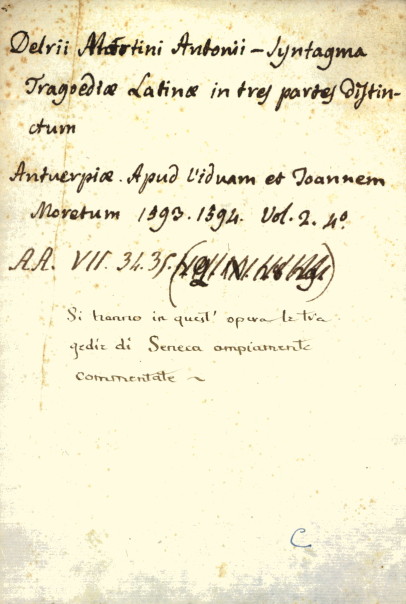 Delrii Martini Antonii – Syntagma
Tragoediæ Latinæ in tres partes distin-
ctum
Antverpiæ. Apud Viduam et Joannem
Moretum 1593. 1594. Vol. 2. 4º.
AA. VII. 34.35.
Si hanno in quest' opera le tra
gedie di Seneca ampiamente
commentate ~
C